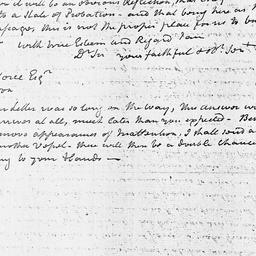 it will be an obvious Reflection, that
to a State of Probation - and that being here as
passages this is not the proper place for us to
with true Esteem and Regard I am
Dr Sir your faithful & obt Servt
Esqr
letter was so long on the way, this answer
arrives at all, much later than you expected - 
more appearances of Inattention, I shall send a
another Vessel - there will then be a double Chance
to your Hands —